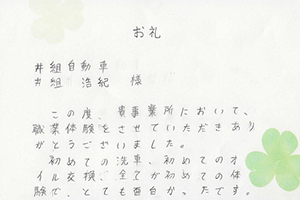 お礼
井組自動車
井組 浩紀 様
この度、貴事業所において、
職業体験をさせていただきあり
がとうございました。
初めての洗車、初めてのオ
イル交換、全てが初めての体
験で、とても面白かったです。